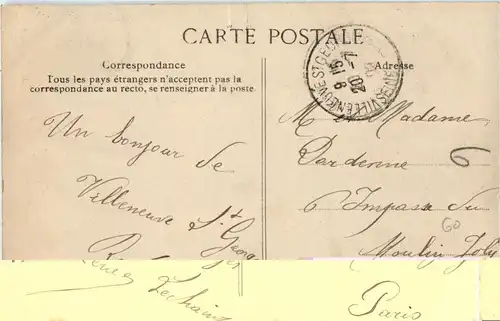 CARTE POSTALE
Correspondance
Tous les pays étrangers n'acceptent pas la
correspondance au recto, se renseigner à la poste.
Un bonjour de
Villeneuve St Georges
Renée
Adresse
VILLENEUVE ST GEO
M et Madame
Dardenne
6 Impasse du
Moulin Joly
Paris
6
60